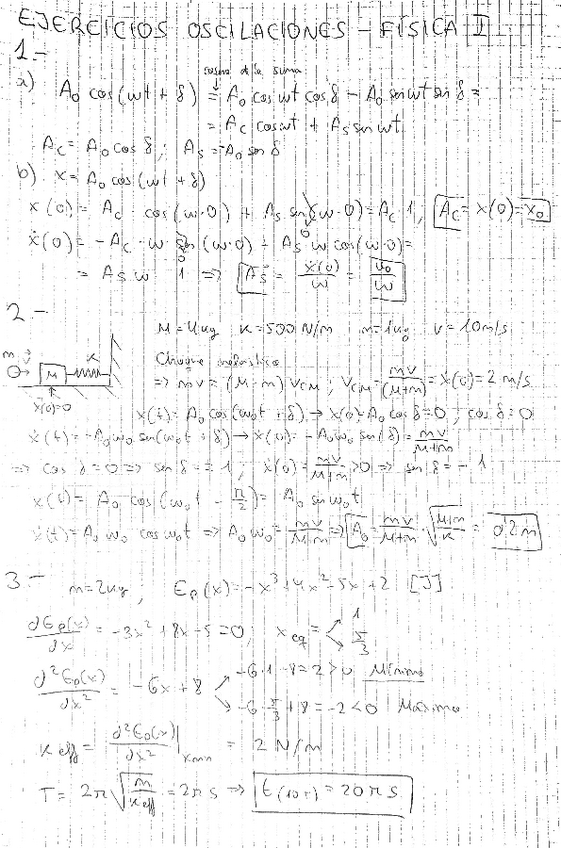 EJERCICIOS OSCILACIONES - FÍSICA I
1.-
coseno de la suma
a) A₀ cos(ωt + δ) = A₀ cos ωt cos δ - A₀ sen ωt sen δ =
= A_c cos ωt + A_s sen ωt
A_c = A₀ cos δ ; A_s = -A₀ sen δ
b) x = A₀ cos(ωt + δ)
x(0) = A_c · cos(ω·0) + A_s sen(ω·0) = A_c · 1 ; A_c = x(0) = x₀
ẋ(0) = -A_c · ω sen(ω·0) + A_s ω cos(ω·0) =
= A_s ω · 1 ⇒ A_s = ẋ(0)/ω = v₀/ω
2.-
M = 4 kg K = 500 N/m m = 1 kg v = 10 m/s
m v M K
x(0)=0
Choque inelástico
⇒ mv = (M+m) v_CM ; v_CM = mv/(M+m) = ẋ(0) = 2 m/s
x(t) = A₀ cos(ω₀t + δ) → x(0) = A₀ cos δ = 0 ; cos δ = 0
ẋ(t) = -A₀ω₀ sen(ω₀t + δ) → ẋ(0) = -A₀ω₀ sen(δ) = mv/(M+m)
⇒ cos δ = 0 ⇒ sen δ = ± 1 ; ẋ(0) = mv/(M+m) > 0 ⇒ sen δ = - 1
x(t) = A₀ cos(ω₀t - π/2) = A₀ sen ω₀t
ẋ(t) = A₀ω₀ cos ω₀t ⇒ A₀ω₀ = mv/(M+m) ⇒ A₀ = mv/(M+m) · √((M+m)/K) = 0'2 m
3.- m = 2 kg ; Ep(x) = -x³ + 4x² - 5x + 2 [J]
dEp(x)/dx = -3x² + 8x - 5 = 0 ; x_eq = 1 5/3
d²Ep(x)/dx² = -6x + 8 -6·1 + 8 = 2 > 0 Mínimo
-6 · 5/3 + 8 = -2 < 0 Máximo
K eff = d²Ep(x)/dx² |x_min = 2 N/m
T = 2π √(m/K eff) = 2π s ⇒ t(10T) = 20π s